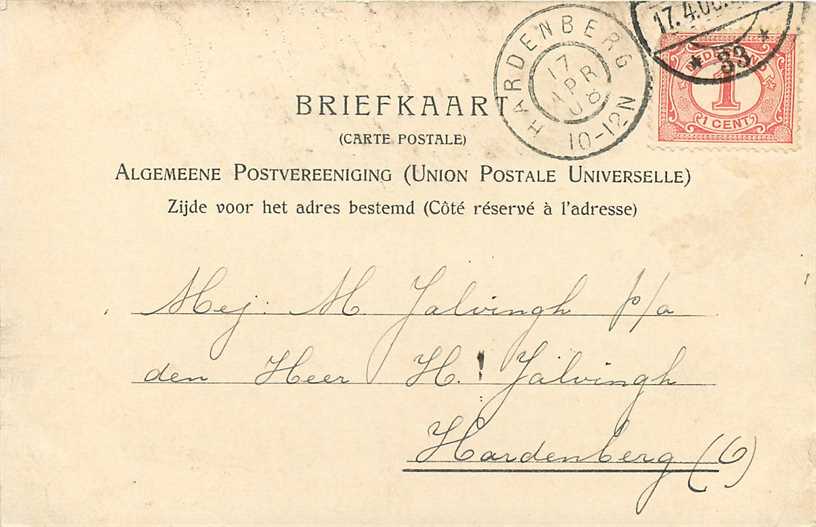 HARDENBERG
17
APR
08
10-12N
17.4.08
* 33 *
NEDERLAND
1
1 CENT
BRIEFKAART
(CARTE POSTALE)
ALGEMEENE POSTVEREENIGING (UNION POSTALE UNIVERSELLE)
Zijde voor het adres bestemd (Côté réservé à l'adresse)
Mej. M. Jalvingh p/a
den Heer H. Jalvingh
Hardenberg (6)